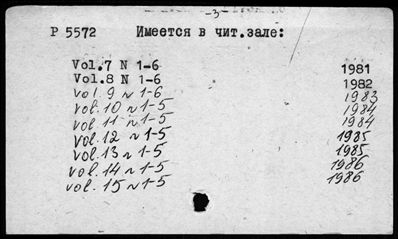 -3-
P 5572 Имеется в чит.зале:
Vol.7 N 1-6 1981
Vol.8 N 1-6 1982
vol.9 N 1-6 1983
vol.10 N 1-5 1984
vol 11 N 1-5 1984
vol.12 N 1-5 1985
vol.13 N 1-5 1985
vol.14 N 1-5 1986
vol.15 N 1-5 1986